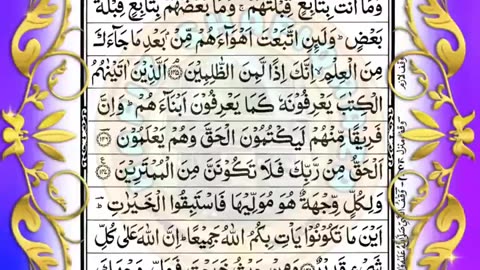 وَمَا اَنْتَ بِتَابِعٍ قِبْلَتَهُمْ ۚ وَمَا بَعْضُهُمْ بِتَابِعٍ قِبْلَةَ
بَعْضٍ ؕ وَلَئِنِ اتَّبَعْتَ اَهْوَآءَهُمْ مِّنْ بَعْدِ مَا جَآءَكَ
مِنَ الْعِلْمِ ۙ اِنَّكَ اِذًا لَّمِنَ الظّٰلِمِيْنَ ۘ﴿۱۴۵﴾ اَلَّذِيْنَ اٰتَيْنٰهُمُ
الْكِتٰبَ يَعْرِفُوْنَهٗ كَمَا يَعْرِفُوْنَ اَبْنَآءَهُمْ ؕ وَاِنَّ
فَرِيْقًا مِّنْهُمْ لَيَكْتُمُوْنَ الْحَقَّ وَهُمْ يَعْلَمُوْنَ ﴿۱۴۶﴾
اَلْحَقُّ مِنْ رَّبِّكَ فَلَا تَكُوْنَنَّ مِنَ الْمُمْتَرِيْنَ ﴿۱۴۷﴾
وَلِكُلٍّ وِّجْهَةٌ هُوَ مُوَلِّيْهَا فَاسْتَبِقُوا الْخَيْرٰتِ ؕ
اَيْنَ مَا تَكُوْنُوْا يَاْتِ بِكُمُ اللّٰهُ جَمِيْعًا ؕ اِنَّ اللّٰهَ عَلٰى كُلِّ
شَىْءٍ قَدِيْرٌ ﴿۱۴۸﴾ وَمِنْ حَيْثُ خَرَجْتَ فَوَلِّ وَجْهَكَ
وقف لازم